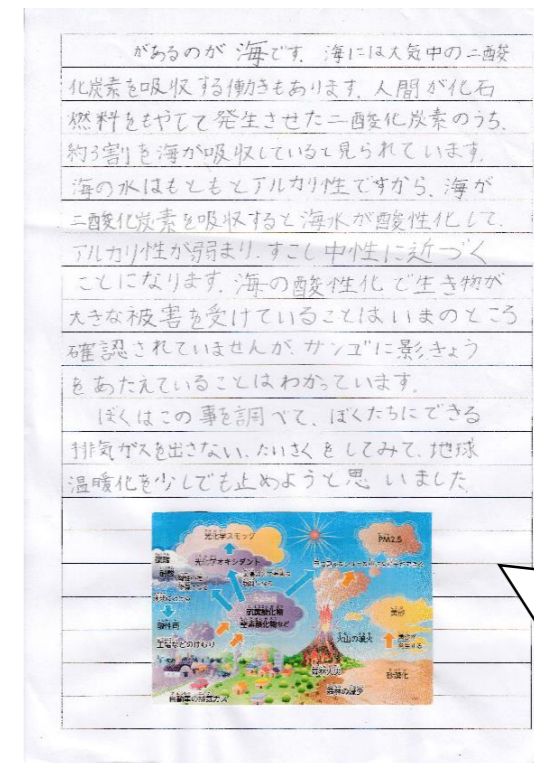 があるのが海です。海には大気中の二酸
化炭素を吸収する働きもあります。人間が化石
燃料をもやして発生させた二酸化炭素のうち、
約3割を海が吸収していると見られています。
海の水はもともとアルカリ性ですから、海が
二酸化炭素を吸収すると海水が酸性化して、
アルカリ性が弱まり、すこし中性に近づく
ことになります。海の酸性化で生き物が
大きな被害を受けていることはいまのところ
確認されていませんが、サンゴに影きょう
をあたえていることはわかっています。
ぼくはこの事を調べて、ぼくたちにできる
排気ガスを出さない、たいさくをしてみて、地球
温暖化を少しでも止めようと思いました
光化学スモッグ
PM2.5
光化学オキシダント
硫黄酸化物
窒素酸化物など
黄砂
酸性雨
工場などのけむり
火山の噴火
森林火災
砂漠化
自動車の排気ガス
森林の減少